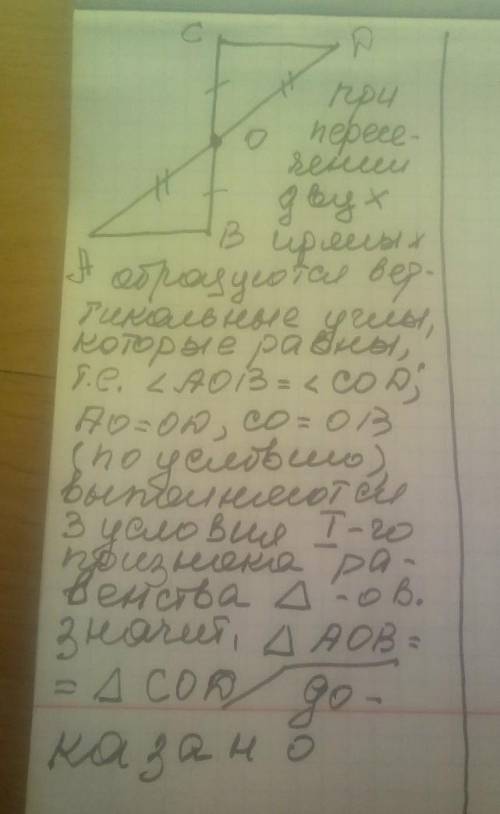 C D
при
O пересе-
чении
двух
B прямых
A образуются вер-
тикальные углы,
которые равны,
т.е. <AOB = <COD;
AO=OD, CO=OB
(по условию),
выполняются
3 условия I-го
признака ра-
венства Δ-ов.
Значит, Δ AOB=
= Δ COD до-
казано